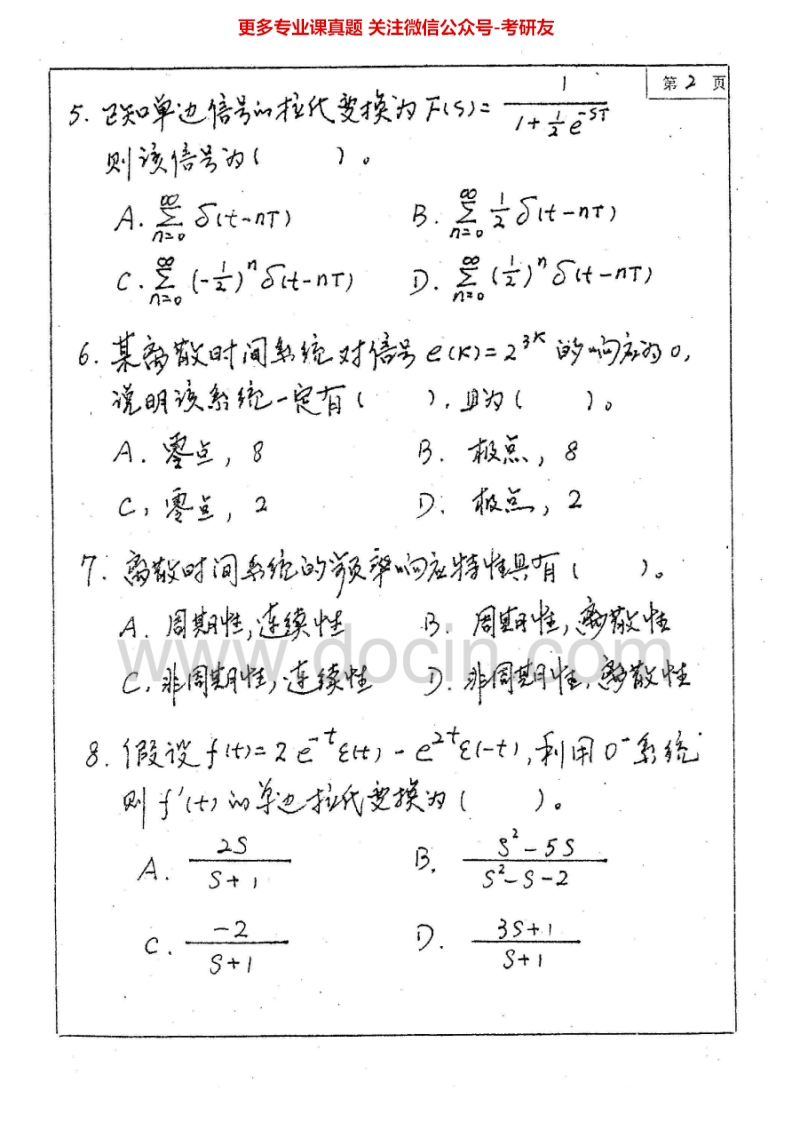 更多专业课真题 关注微信公众号-考研友
第 2 页
5. 已知单边信号的拉氏变换为 F(s) = \frac{1}{1+\frac{1}{2}e^{-sT}}
则该信号为 (　　)。
A. \sum_{n=0}^{\infty} δ(t-nT)　　B. \sum_{n=0}^{\infty} \frac{1}{2} δ(t-nT)
C. \sum_{n=0}^{\infty} (-\frac{1}{2})^n δ(t-nT)　　D. \sum_{n=0}^{\infty} (\frac{1}{2})^n δ(t-nT)
6. 某离散时间系统对信号 e(k) = 2^{3k} 的响应为 0,
说明该系统一定有 (　　), 且为 (　　)。
A. 零点, 8　　B. 极点, 8
C. 零点, 2　　D. 极点, 2
7. 离散时间系统的频率响应特性具有 (　　)。
A. 周期性, 连续性　　B. 周期性, 离散性
www.docin.com
C. 非周期性, 连续性　　D. 非周期性, 离散性
8. 假设 f(t) = 2e^{-t}ε(t) - e^{2t}ε(-t), 利用 0^- 系统
则 f'(t) 的单边拉氏变换为 (　　)。
A. \frac{2s}{s+1}　　B. \frac{s^2-5s}{s^2-s-2}
C. \frac{-2}{s+1}　　D. \frac{3s+1}{s+1}